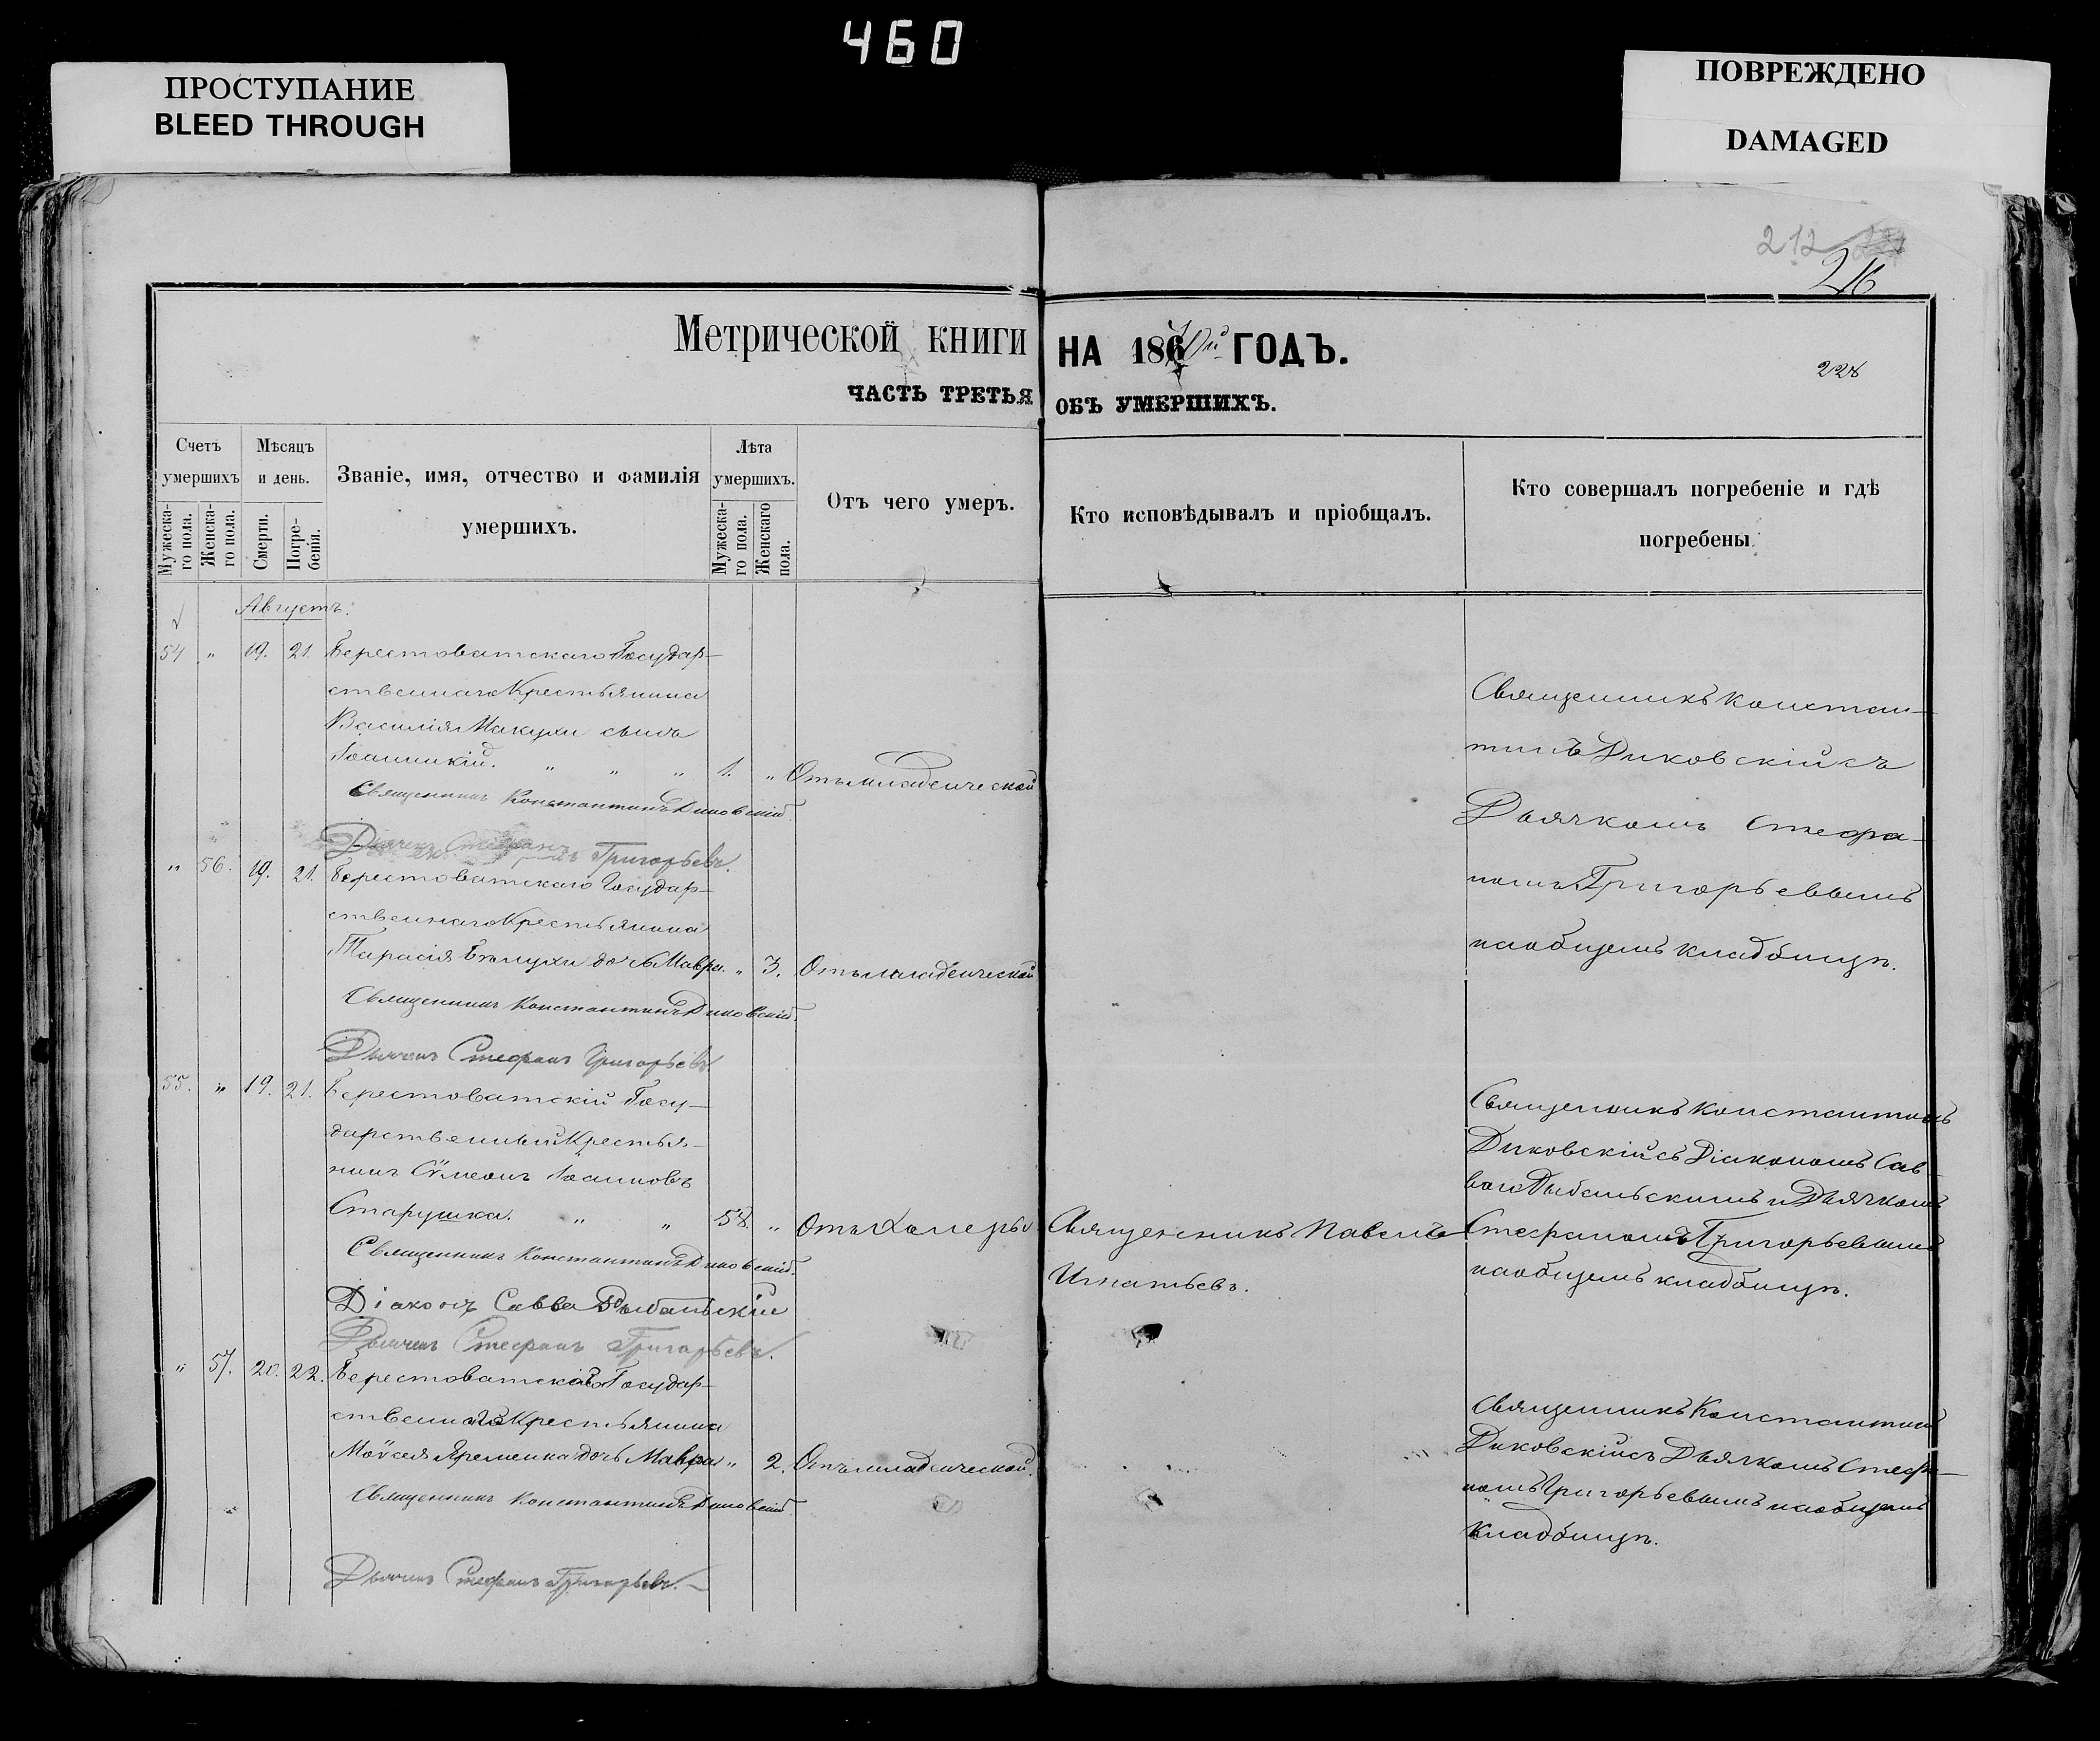 460
ПРОСТУПАНИЕ
BLEED THROUGH
ПОВРЕЖДЕНО
DAMAGED
212
216
228
Метрической книги
НА 1870й ГОДЪ.
ЧАСТЬ ТРЕТЬЯ
ОБЪ УМЕРШИХЪ.
Счетъ умершихъ
Мужеска-го пола.
Женска-го пола.
Мѣсяцъ и день.
Смерти.
Погре-бенія.
Званіе, имя, отчество и фамилія умершихъ.
Лѣта умершихъ.
Мужеска-го пола.
Женскаго пола.
Отъ чего умеръ.
Кто исповѣдывалъ и пріобщалъ.
Кто совершалъ погребеніе и гдѣ погребены.
Августъ.
54 " 19. 21. Берестоватскаго Государ-
ственнаго Крестьянина
Василія Макухи сынъ
Іоанникій. " " " 1. " Отъ младенческой
Священникъ Константинъ Диковскій.
Дьячекъ Стефанъ Григорьевъ.
Священникъ Констан-
тинъ Диковскій съ
Дьячкомъ Стефа-
номъ Григорьевымъ
на общемъ кладбищѣ.
" 56. 19. 21. Берестоватскаго Государ-
ственнаго Крестьянина
Тарасія Бѣлухи дочь Мавра. " 3. Отъ младенческой
Священникъ Константинъ Диковскій.
Дьячекъ Стефанъ Григорьевъ
55. " 19. 21. Берестоватскій Госу-
дарственный Крестья-
нинъ Сѵмеонъ Іоанновъ
Старушка. " " 58. " Отъ Холеры
Священникъ Константинъ Диковскій.
Діаконъ Савва Рыбальскій
Дьячекъ Стефанъ Григорьевъ.
Священникъ Павелъ
Игнатьевъ.
Священникъ Константинъ
Диковскій съ Діакономъ Сав-
вою Рыбальскимъ и Дьячкомъ
Стефаномъ Григорьевымъ
на общемъ кладбищѣ.
" 57. 20. 22. Берестоватскаго Государ-
ственнаго Крестьянина
Моѵсея Яременка дочь Мавра " 2. Отъ младенческой.
Священникъ Константинъ Диковскій.
Дьячекъ Стефанъ Григорьевъ.
Священникъ Константинъ
Диковскій съ Дьячкомъ Стефа-
номъ Григорьевымъ на общемъ
кладбищѣ.